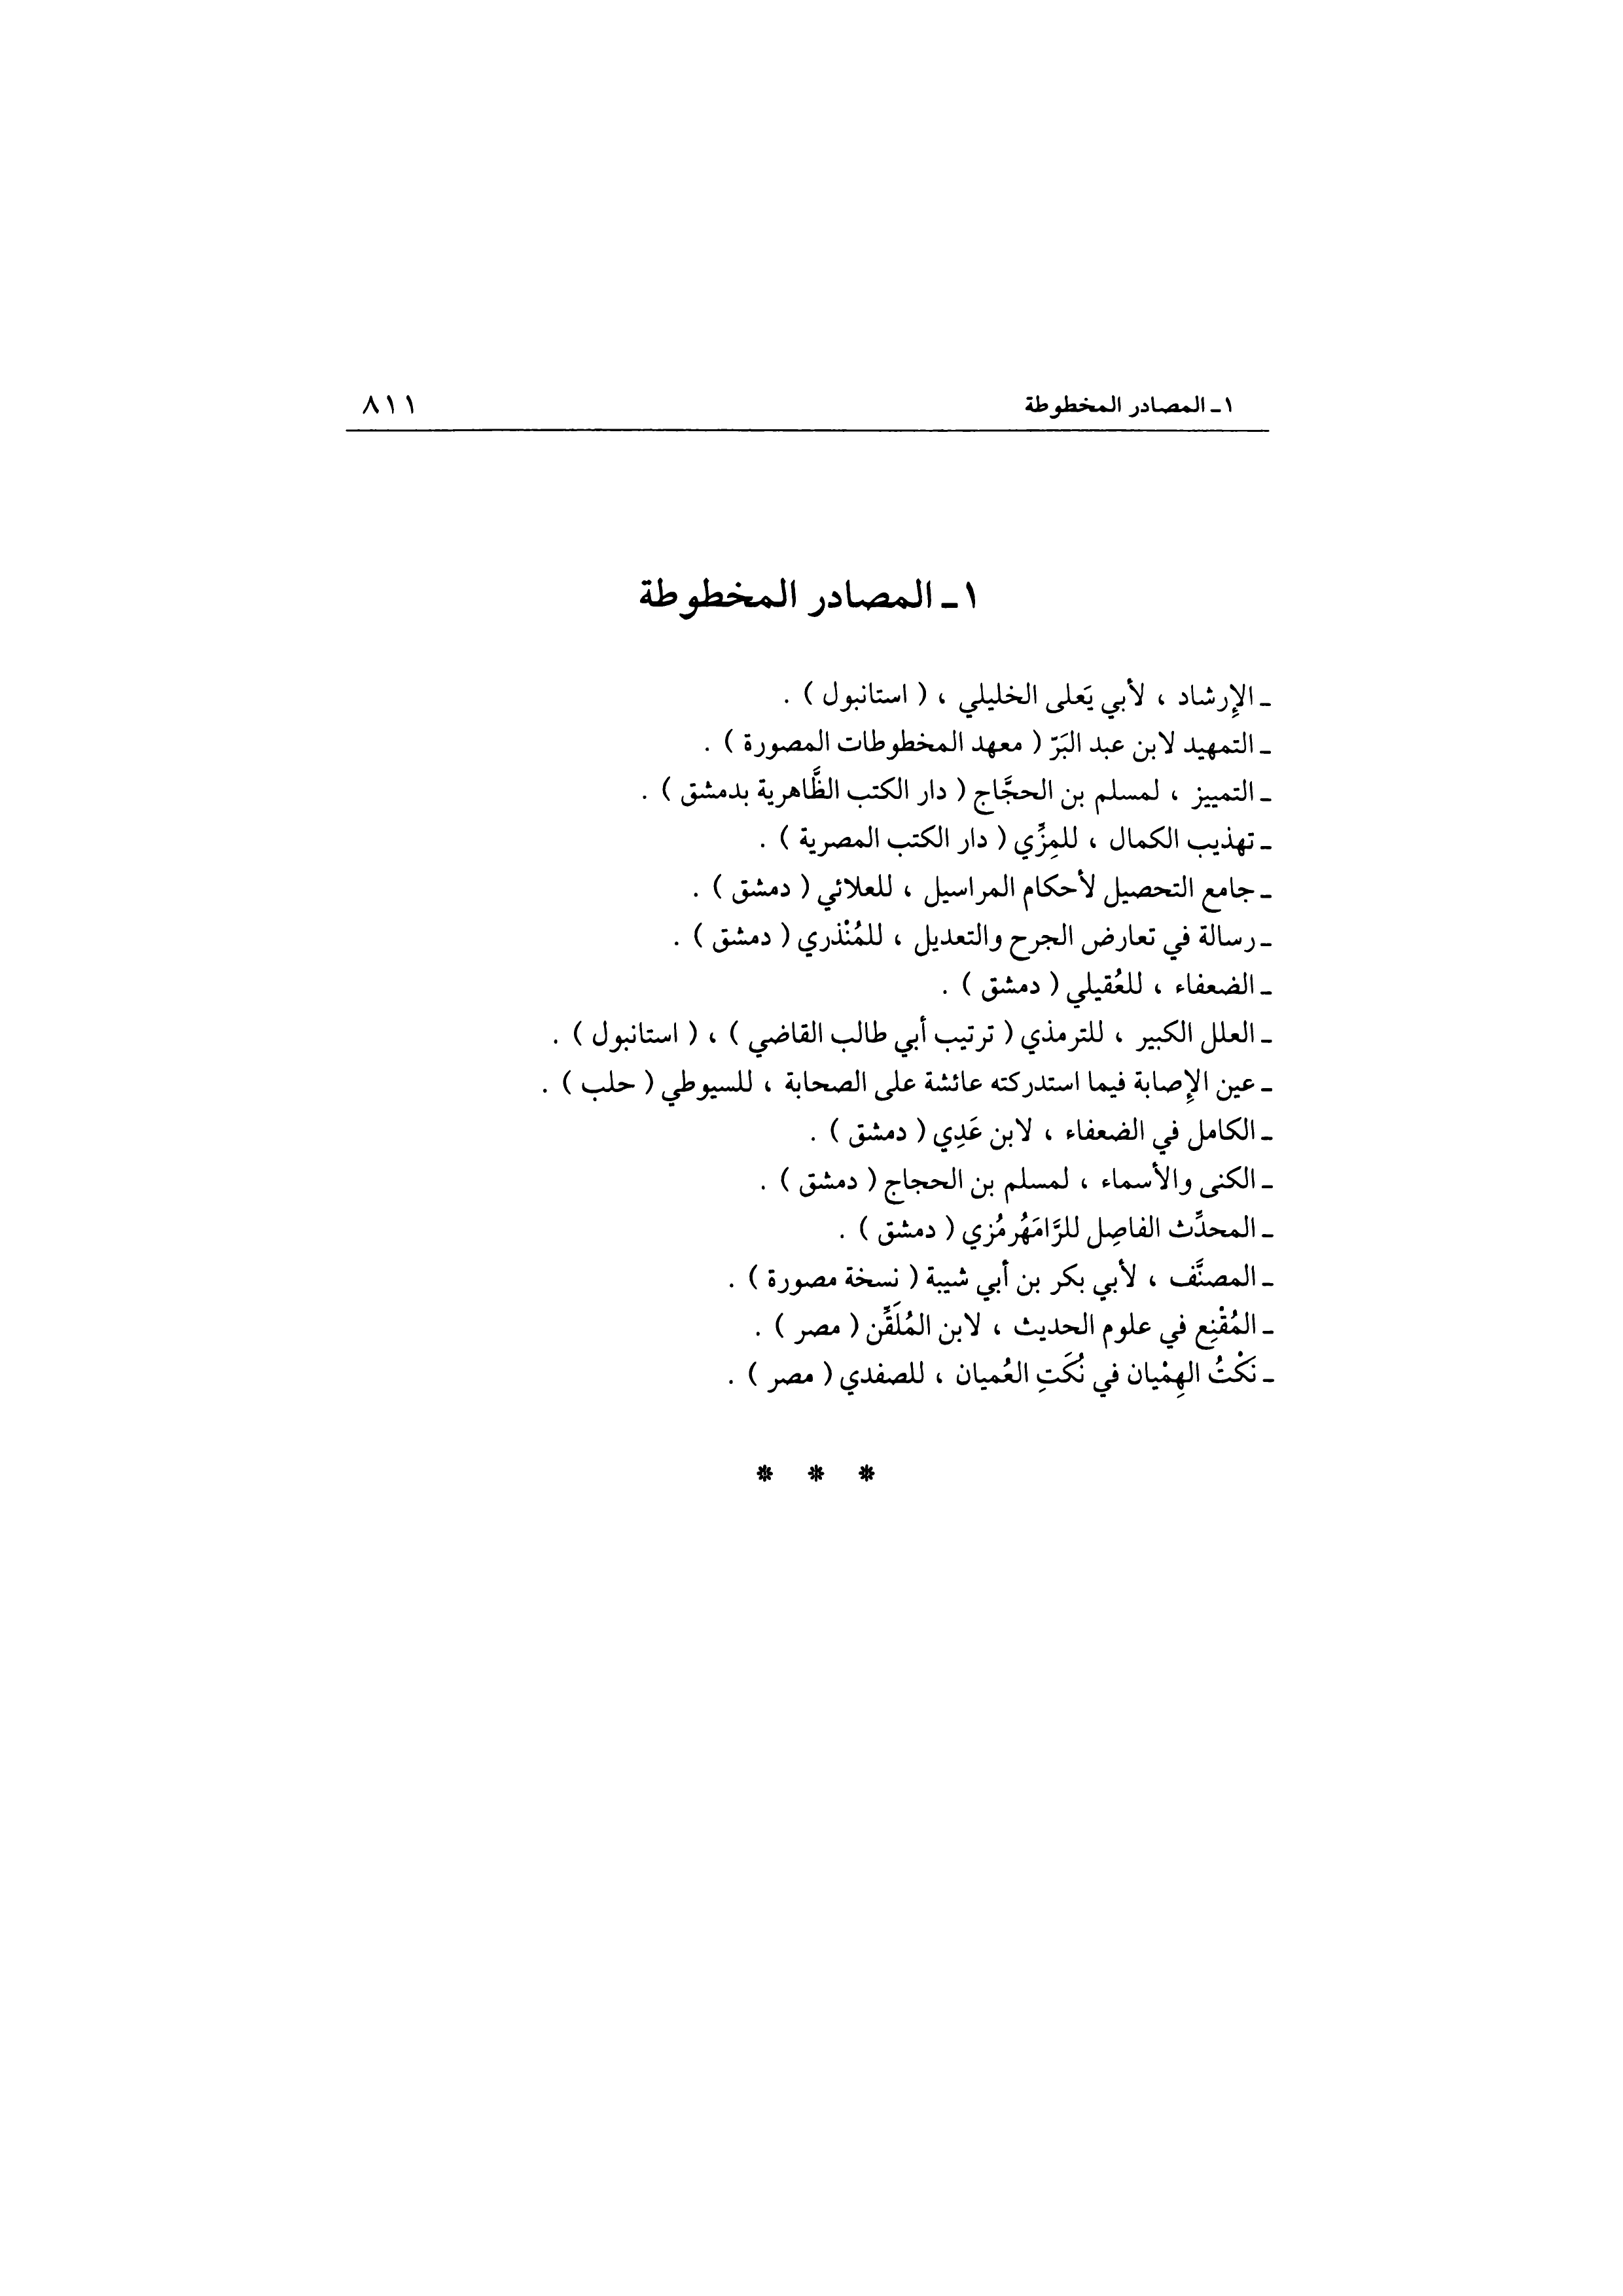 ١ـ المصادر المخطوطة ٨١١
١ـ المصادر المخطوطة
ـ الإِرشاد ، لأبي يَعلى الخليلي ، ( استانبول ) .
ـ التمهيد لابن عبد البَرّ ( معهد المخطوطات المصورة ) .
ـ التمييز ، لمسلم بن الحجَّاج ( دار الكتب الظَّاهرية بدمشق ) .
ـ تهذيب الكمال ، للمِزِّي ( دار الكتب المصرية ) .
ـ جامع التحصيل لأحكام المراسيل ، للعلائي ( دمشق ) .
ـ رسالة في تعارض الجرح والتعديل ، للمُنْذري ( دمشق ) .
ـ الضعفاء ، للعُقيلي ( دمشق ) .
ـ العلل الكبير ، للترمذي ( ترتيب أبي طالب القاضي ) ، ( استانبول ) .
ـ عين الإِصابة فيما استدركته عائشة على الصحابة ، للسيوطي ( حلب ) .
ـ الكامل في الضعفاء ، لابن عَدِي ( دمشق ) .
ـ الكنى والأسماء ، لمسلم بن الحجاج ( دمشق ) .
ـ المحدِّث الفاصِل للرَّامَهُرمُزي ( دمشق ) .
ـ المصنَّف ، لأبي بكر بن أبي شيبة ( نسخة مصورة ) .
ـ المُقْنِع في علوم الحديث ، لابن المُلَقِّن ( مصر ) .
ـ نَكْتُ الهِمْيان في نُكَتِ العُميان ، للصفدي ( مصر ) .
* * *